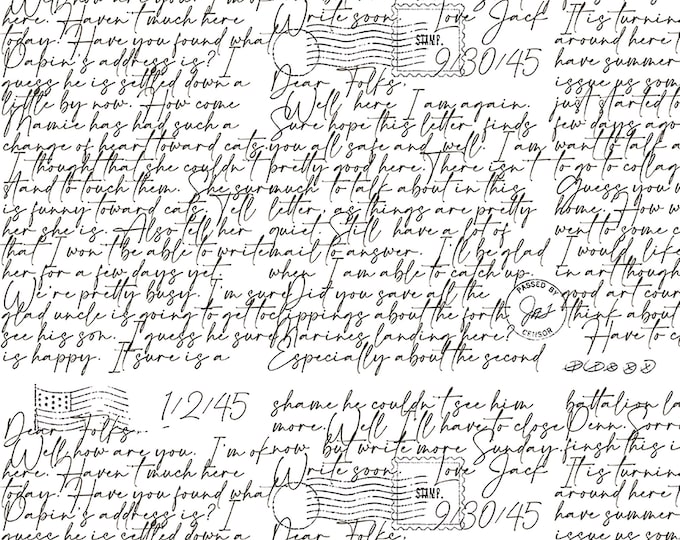 here. Haven't much here
today. Have you found what
Papin's address is? I
guess he is settled down a
little by now. How come
Mamie has had such a
change of heart toward cats.
I thought that she couldn't
stand to touch them. She sur
is funny toward cats. Tell
her she is. Also tell her
that I won't be able to write
her for a few days yet.
We're pretty busy. I'm sure
glad uncle is going to get to
see his son. I guess he sure
is happy. It sure is a
1/2/45
Dear Folks,
Well how are you. I'm o
here. Haven't much here
today. Have you found what
Papin's address is? I
guess he is settled down a
Write soon Love Jack
STAMP.
9/30/45
Dear Folks,
Well here I am again.
Sure hope this letter finds
you all safe and well. I am
pretty good here. There isn't
much to talk about in this
letter, as things are pretty
quiet. Still have a lot of
mail to answer. I'll be glad
when I am able to catch up.
Did you save all the
clippings about the forth
Marines landing here?
Especially about the second
PASSED BY
CENSOR
shame he couldn't see him
more. Well I'll have to close
now but write more Sunday.
Write soon Love Jack
STAMP.
9/30/45
Dear Folks,
It is turnin
around here t
have summer
issue us som
just started to
few days ago
want to talk a
to go to colleg
Guess you w
home. How w
went to some c
I would like
in art though
good art cour
think about
Have to c
battalion la
Penn. Sorr
finsh this i
It is turnin
around here t
have summer
issue us som